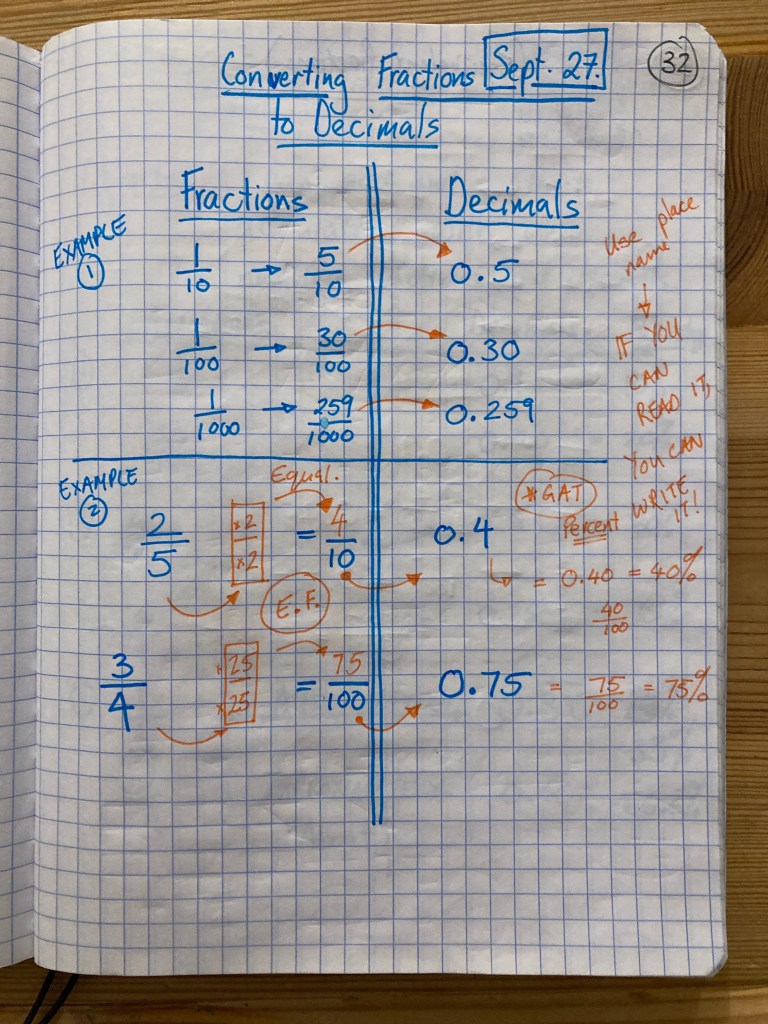 Converting Fractions Sept. 27. 32
to Decimals
Fractions Decimals
EXAMPLE
1
1/10 → 5/10 0.5
1/100 → 30/100 0.30
1/1000 → 259/1000 0.259
Use place
name
↓
IF YOU
CAN
READ IT,
YOU CAN
WRITE
IT!
EXAMPLE
2
Equal.
2/5 ×2/×2 = 4/10 0.4
E.F.
*GAT
Percent
= 0.40 = 40%
40/100
3/4 ×25/×25 = 75/100 0.75 = 75/100 = 75%